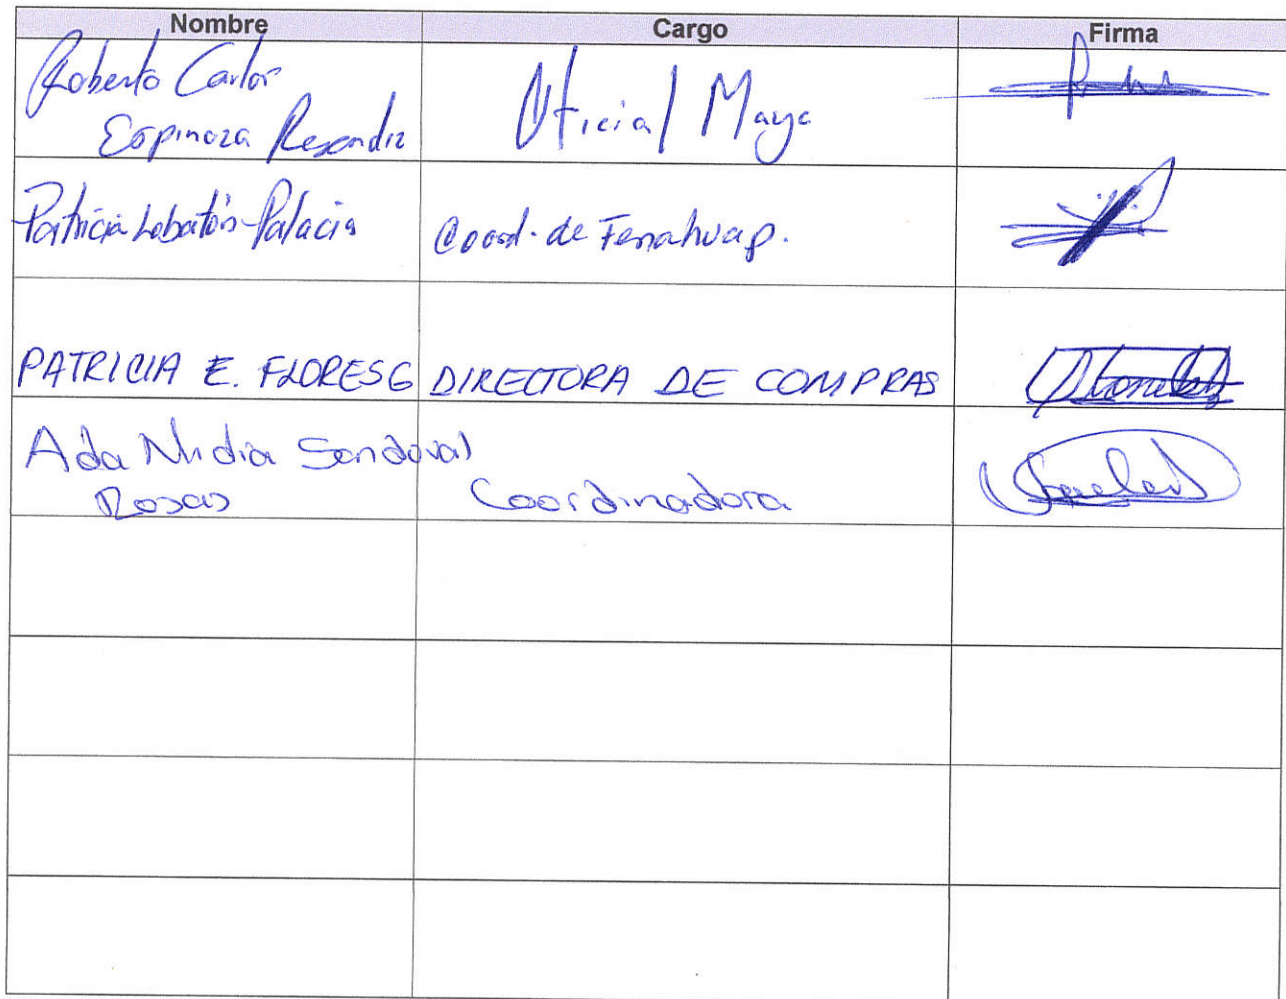 Nombre Cargo Firma
Roberto Carlos
Espinoza Resendiz
Oficial Mayo
Patricia Lobatón Palacio
Coord. de Fenahuap.
PATRICIA E. FLORES G DIRECTORA DE COMPRAS
Ada Nidia Sandoval
Rosas Coordinadora